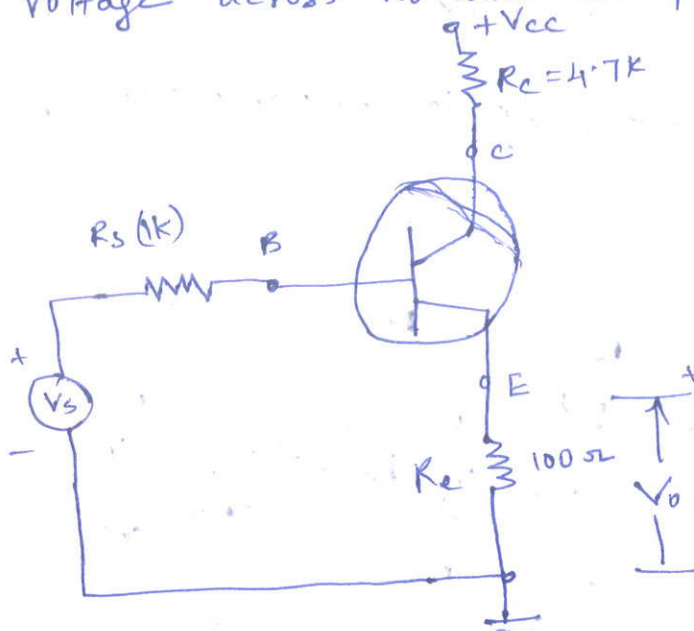 voltage across
+Vcc
Rc = 4.7K
C
Rs (1K)
B
+
Vs
-
E
Re
100 Ω
+
Vo